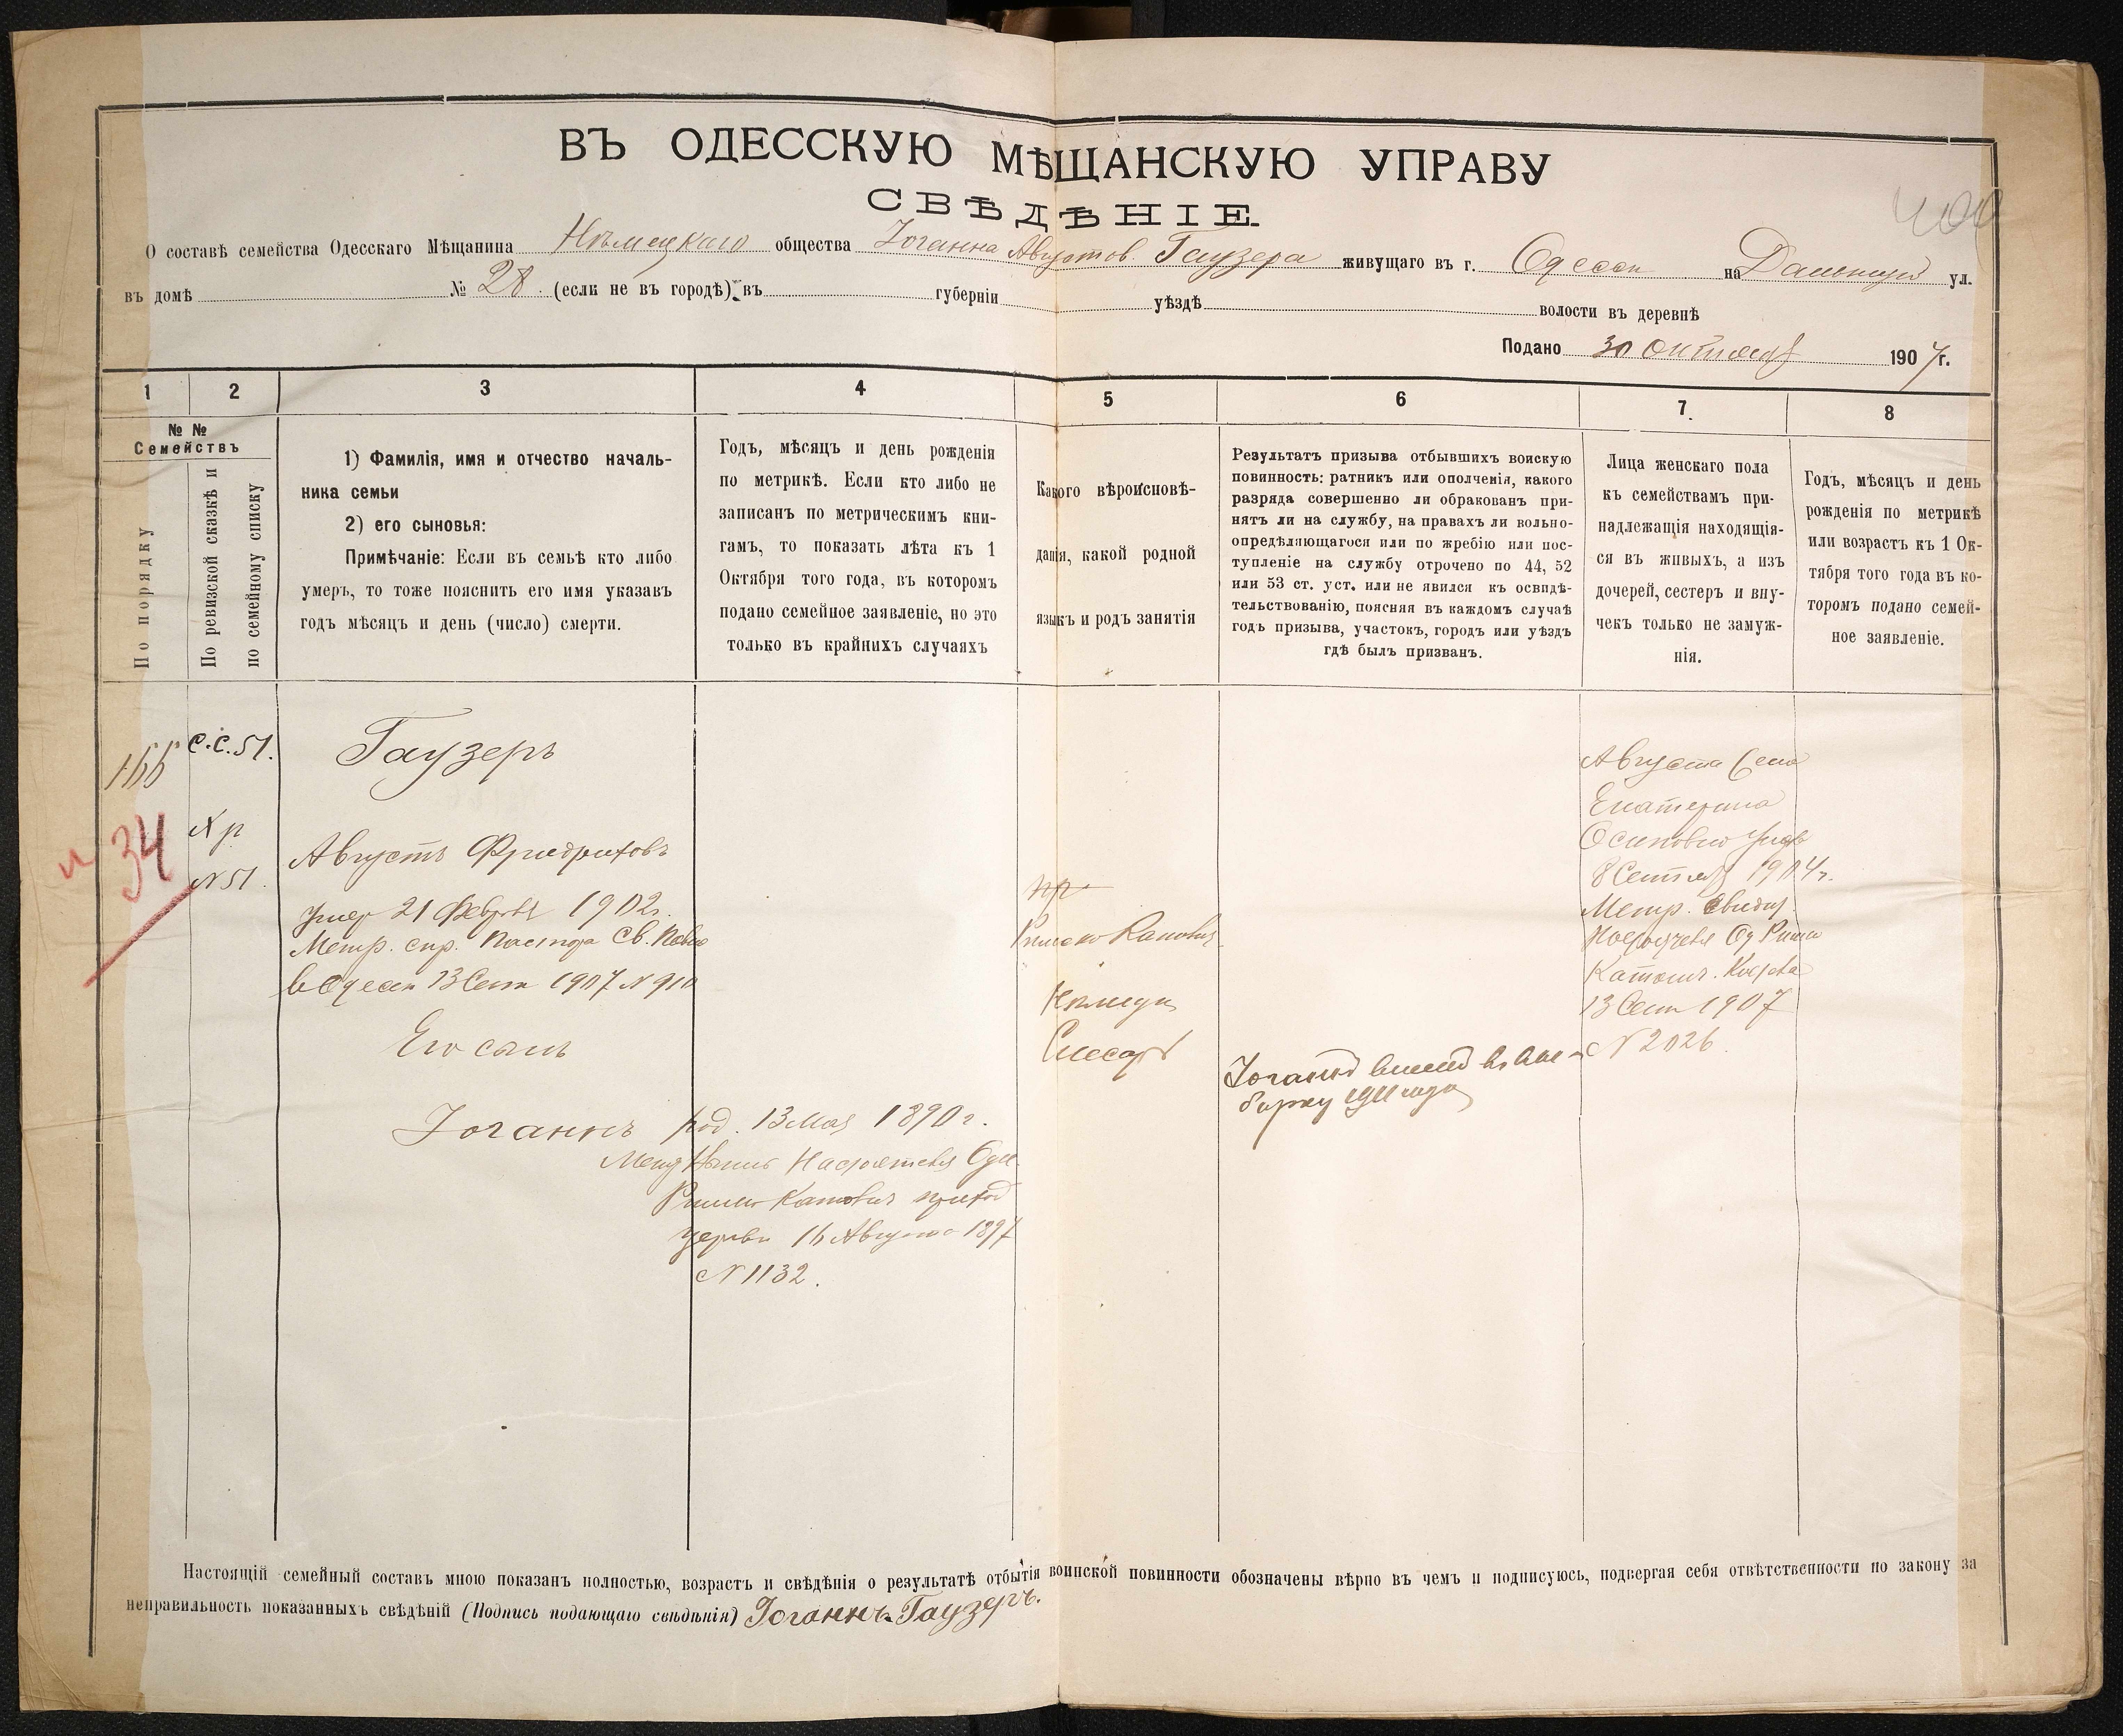 400
ВЪ ОДЕССКУЮ МѢЩАНСКУЮ УПРАВУ
СВѢДѢНІЕ.
О составѣ семейства Одесскаго Мѣщанина Нѣмецкаго общества Іоганна Августов. Гаузера живущаго въ г. Одессы на Дальницкой ул.
въ домѣ № 28. (если не въ городѣ) въ губерніи уѣздѣ волости въ деревнѣ
Подано 30 Октября 1907 г.
1 2 3 4 5 6 7. 8
№ №
Семействъ
По порядку
По ревизской сказкѣ и
по семейному списку
1) Фамилія, имя и отчество началь-
ника семьи
2) его сыновья:
Примѣчаніе: Если въ семьѣ кто либо
умеръ, то тоже пояснить его имя указавъ
годъ мѣсяцъ и день (число) смерти.
Годъ, мѣсяцъ и день рожденія
по метрикѣ. Если кто либо не
записанъ по метрическимъ кни-
гамъ, то показать лѣта къ 1
Октября того года, въ которомъ
подано семейное заявленіе, но это
только въ крайнихъ случаяхъ
Какого вѣроисповѣ-
данія, какой родной
языкъ и родъ занятія
Результатъ призыва отбывшихъ воискую
повинность: ратникъ или ополченія, какого
разряда совершенно ли обракованъ при-
нятъ ли на службу, на правахъ ли вольно-
опредѣляющагося или по жребію или пос-
тупленіе на службу отрочено по 44, 52
или 53 ст. уст. или не явился къ освидѣ-
тельствованію, поясняя въ каждомъ случаѣ
годъ призыва, участокъ, городъ или уѣздъ
гдѣ былъ призванъ.
Лица женскаго пола
къ семействамъ при-
надлежащія находящія-
ся въ живыхъ, а изъ
дочерей, сестеръ и вну-
чекъ только не замуж-
нія.
Годъ, мѣсяцъ и день
рожденія по метрикѣ
или возрастъ къ 1 Ок-
тября того года въ ко-
торомъ подано семей-
ное заявленіе.
166
34
С.С.51.
Хр
N 51.
Гаузеръ
Августъ Фридриховъ
Умер 21 Февраля 1902г.
Метр. спр. Пастора Св. Павла
в Одессе 13 Сент 1907 N 910
Его сынъ
Іоганнъ род. 13 Мая 1890 г.
Настоятеля Одес.
Римско Католич приход
церкви 16 Августа 1897
N 1132.
пр.
Римско Католич.
Нѣмецк
Слесарь
Іоганнъ внесенъ въ
1911 года
Августа
Екатерина
Осиповна умер
8 Сентября 1904г.
Метр. Свидет.
Настоятеля Од Римско
Католич.
13 Сент 1907
N 2026.
Настоящій семейный составъ мною показанъ полностью, возрастъ и свѣдѣнія о результатѣ отбытія воинской повинности обозначены вѣрно въ чемъ и подписуюсь, подвергая себя отвѣтственности по закону за
неправильность показанныхъ свѣдѣній (Подпись подающаго свѣдѣнія) Іоганнъ Гаузеръ.